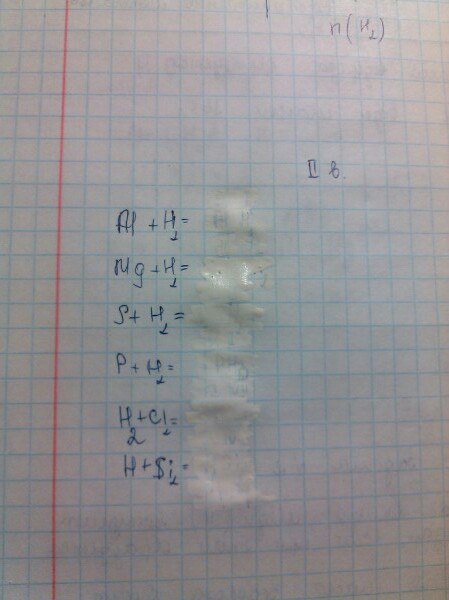 n(H₂)
II в.
Al + H₂ =
Mg + H₂ =
S + H₂ =
P + H₂ =
H₂ + Cl₂ =
H + Si₂ =